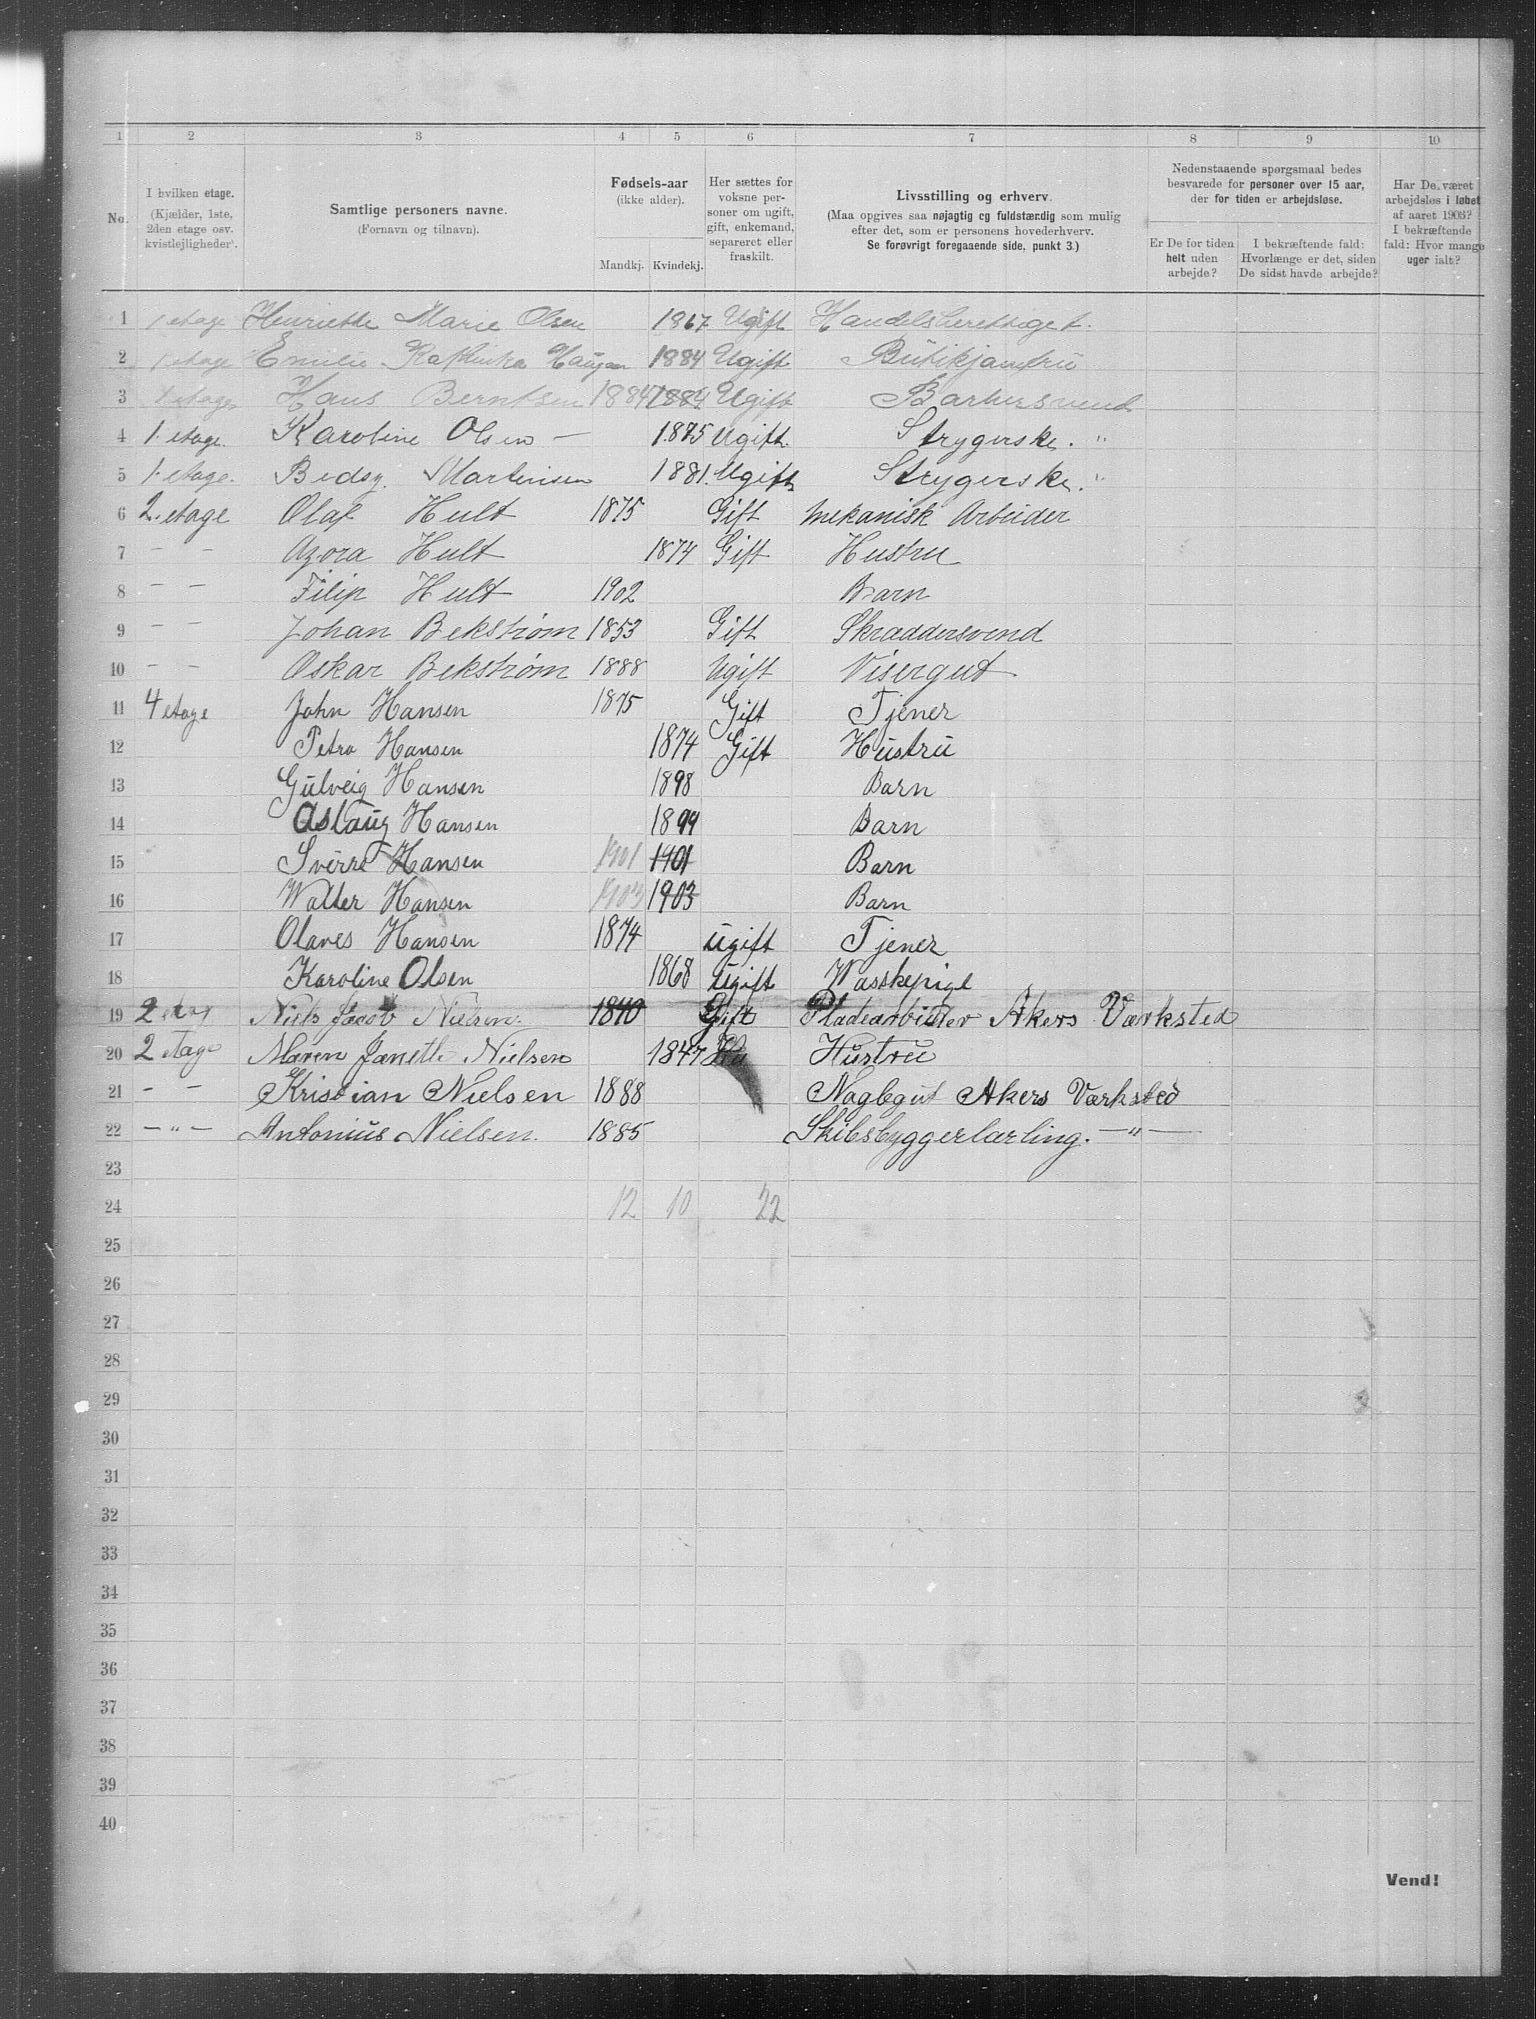 1 2 3 4 5 6 7 8 9 10
No. I hvilken etage. (Kjælder, 1ste, 2den etage osv. kvistlejligheder).
Samtlige personers navne. (Fornavn og tilnavn).
Fødsels-aar (ikke alder). Mandkj. Kvindekj.
Her sættes for voksne personer om ugift, gift, enkemand, separeret eller fraskilt.
Livsstilling og erhverv. (Maa opgives saa nøjagtig og fuldstærdig som mulig efter det, som er personens hovederhverv. Se forøvrigt foregaaende side, punkt 3.)
Nedenstaaende spørgsmaal bedes besvarede for personer over 15 aar, der for tiden er arbejdsløse.
Er De for tiden helt uden arbejde?
I bekræftende fald: Hvorlænge er det, siden De sidst havde arbejde?
Har De været arbejdsløs i løbet af aaret 1903? I bekræftende fald: Hvor mange uger ialt?
1 1 etage Henriette Marie Olsen 1867 Ugift
2 1 etage Emilie Haugan 1884 Ugift
3 1 etage Hans Berntsen 1884 1884 Ugift Barbersvend
4 1. etage. Karoline Olsen — 1875 Ugift. Strygerske. "
5 1. etage. Bedsy. Martinsen 1881. Ugift Strygerske. "
6 2. etage Olaf Hult 1875 Gift Mekanisk Arbeider
7 — — Azora Hult 1874 Gift Hustru
8 — — Filip Hult 1902 Barn
9 — — Johan Bekstrøm 1853 Gift Skraddersvend
10 — — Oskar Bekstrøm 1888 Ugift Visergut
11 4 etage John Hansen 1875 Gift Tjener
12 Petra Hansen 1874 Gift Hustru
13 Gulveig Hansen 1898 Barn
14 Aslaug Hansen 1899 Barn
15 Sverre Hansen 1901 1901 Barn
16 Walter Hansen 1903 1903 Barn
17 Olaves Hansen 1874 ugift Tjener
18 Karoline Olsen 1868 ugift Wasskepige
19 2 etag Niels Jacob Nielsen. 1840 Gift Pladearbider Akers Værksted
20 2 etage Maren Janette Nielsen 1847 Hustru
21 — — Kristian Nielsen 1888 Naglegut Akers Værksted
22 — " — Antonius Nielsen. 1885 Skibsbyggerlærling. — " —
23
24 12 10 22
25
26
27
28
29
30
31
32
33
34
35
36
37
38
39
40
Vend!